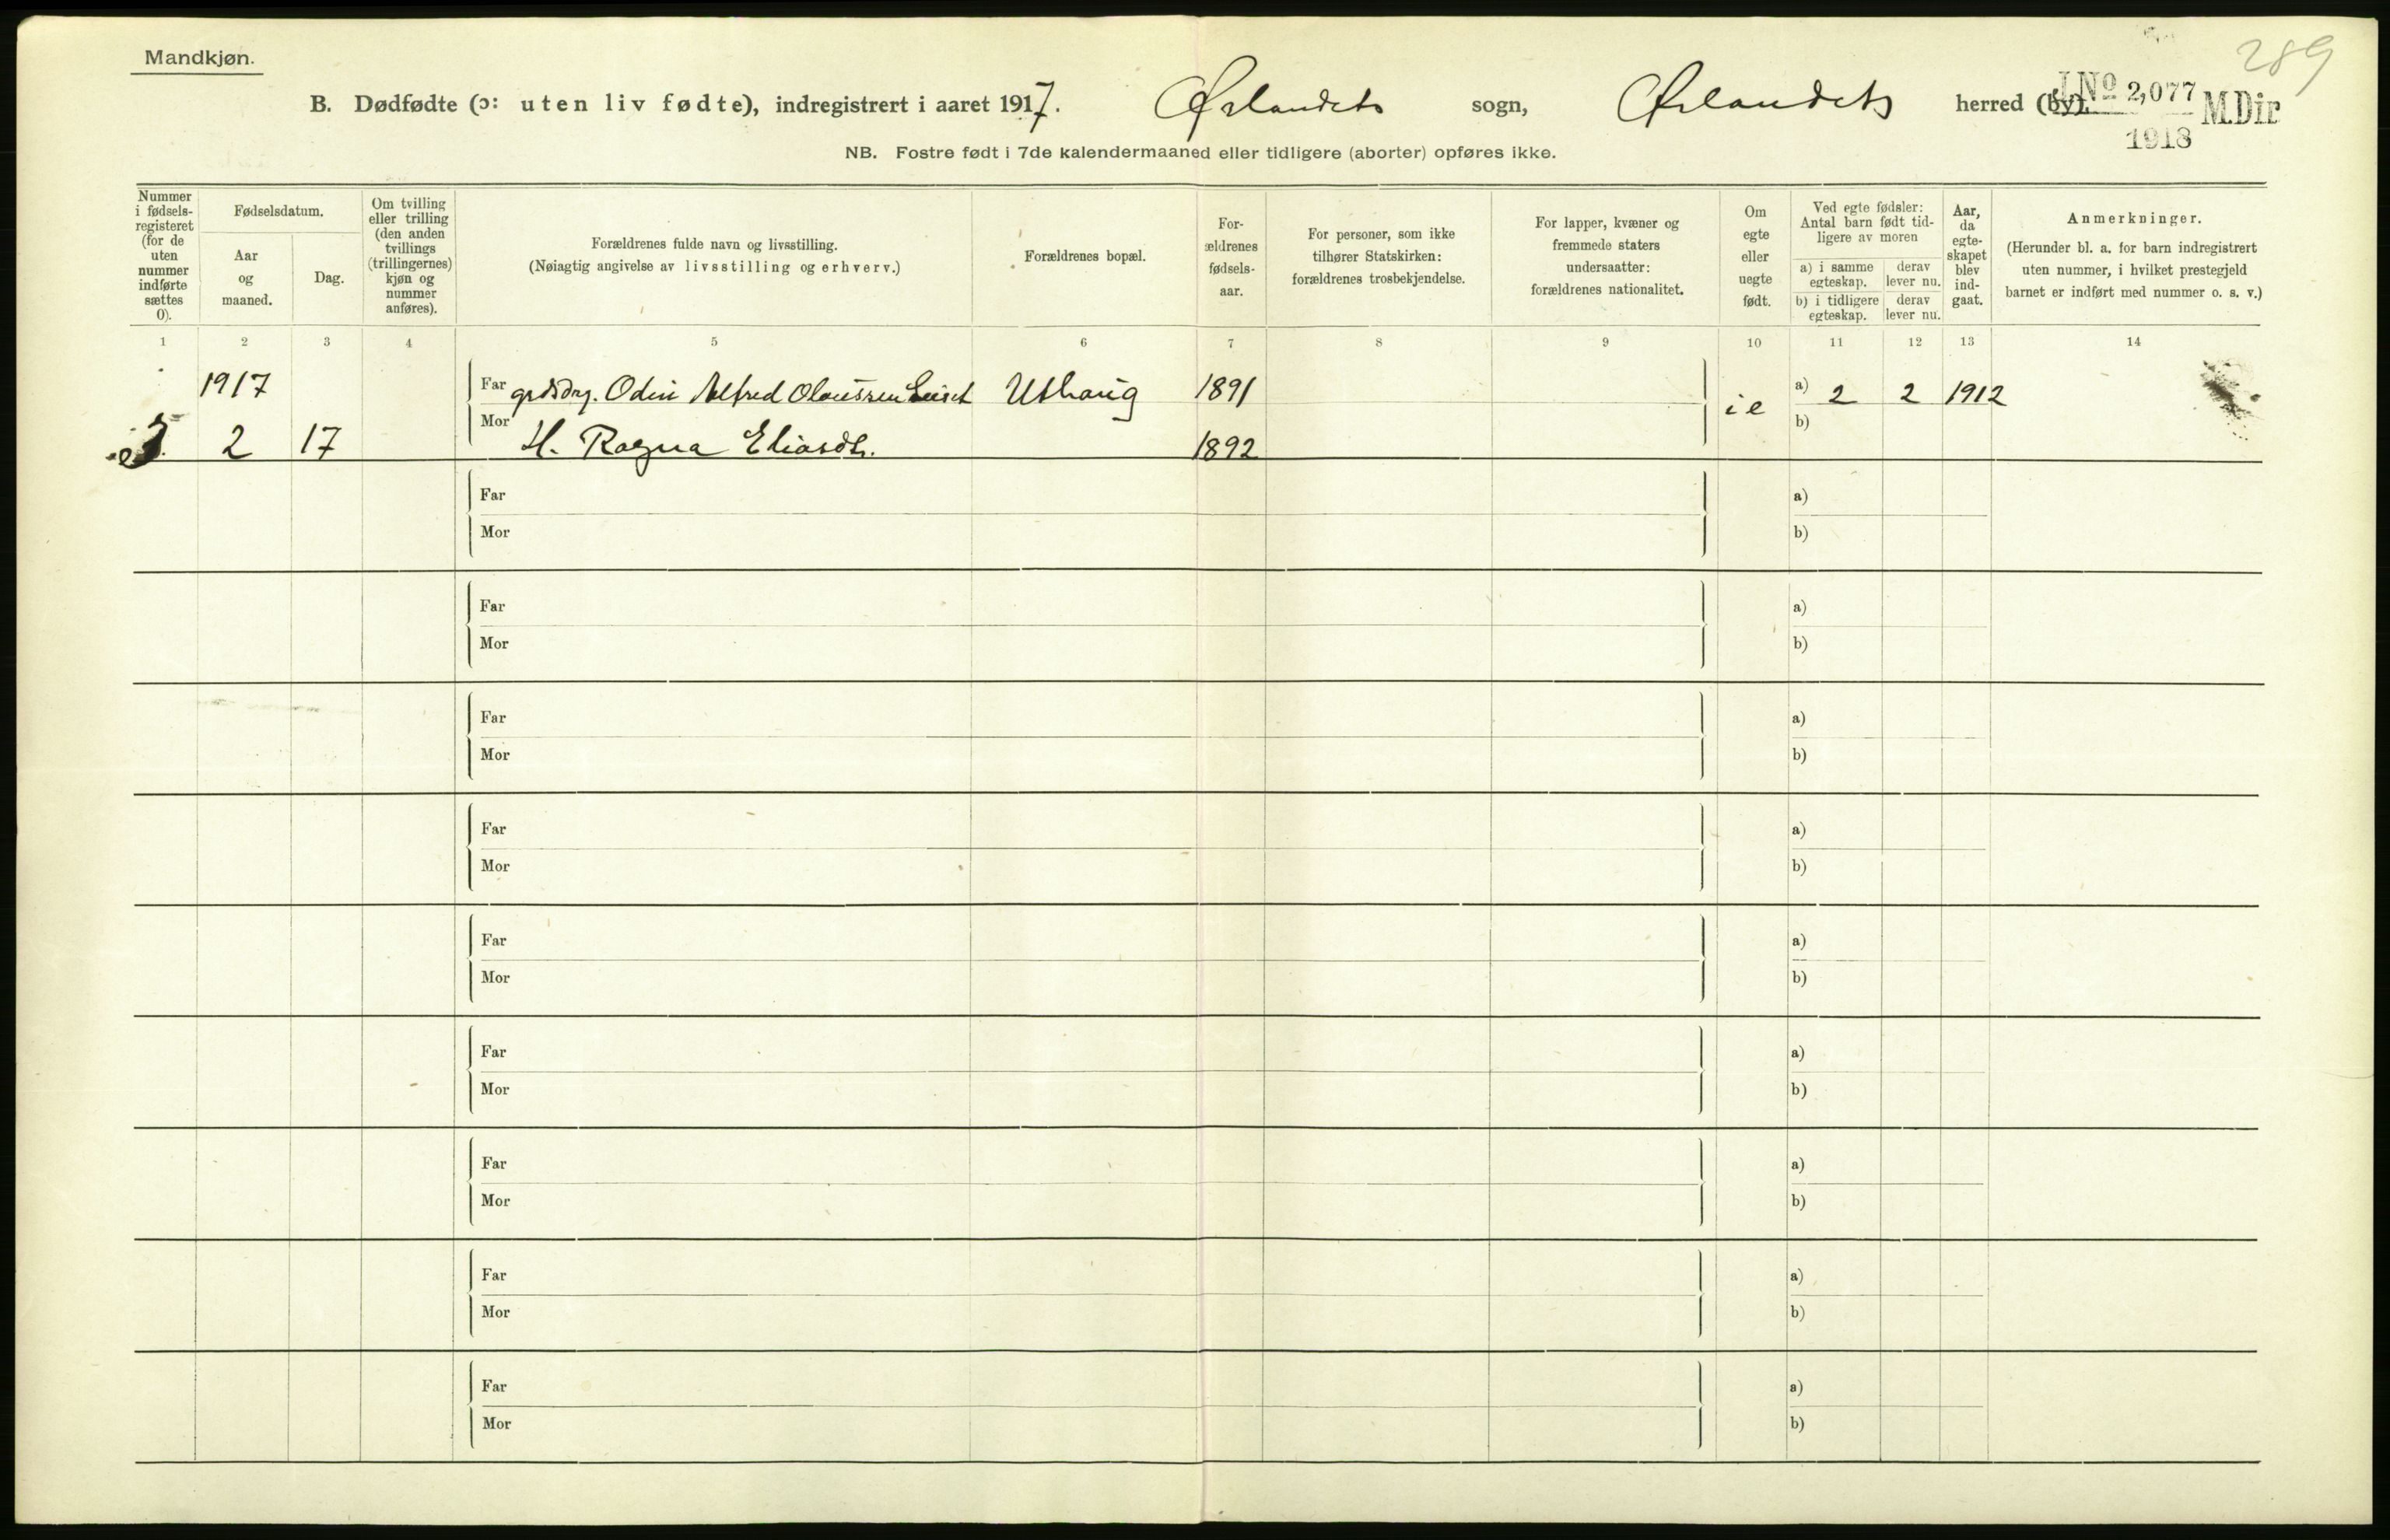 289
Mandkjøn.
B. Dødfødte (ɔ: uten liv fødte), indregistrert i aaret 1917. Ørlandets sogn, Ørlandets herred (by).
J.No 2,077 M.Dir
1918
NB. Fostre født i 7de kalendermaaned eller tidligere (aborter) opføres ikke.
Nummer
i fødsels-
registeret
(for de
uten
nummer
indførte
sættes
0).
Fødselsdatum.
Aar
og
maaned.
Dag.
Om tvilling
eller trilling
(den anden
tvillings
(trillingernes)
kjøn og
nummer
anføres).
Forældrenes fulde navn og livsstilling.
(Nøiagtig angivelse av livsstilling og erhverv.)
Forældrenes bopæl.
For-
ældrenes
fødsels-
aar.
For personer, som ikke
tilhører Statskirken:
forældrenes trosbekjendelse.
For lapper, kvæner og
fremmede staters
undersaatter:
forældrenes nationalitet.
Om
egte
eller
uegte
født.
Ved egte fødsler:
Antal barn født tid-
ligere av moren
a) i samme
egteskap.
derav
lever nu.
b) i tidligere
egteskap.
derav
lever nu.
Aar,
da
egte-
skapet
blev
ind-
gaat.
Anmerkninger.
(Herunder bl. a. for barn indregistrert
uten nummer, i hvilket prestegjeld
barnet er indført med nummer o. s. v.)
1 2 3 4 5 6 7 8 9 10 11 12 13 14
1917 Far Odin Alfred Olaussen Uthaug 1891 ie a) 2 2 1912
2 17 Mor H. Ragna Eliasdtr. 1892 b)
Far a)
Mor b)
Far a)
Mor b)
Far a)
Mor b)
Far a)
Mor b)
Far a)
Mor b)
Far a)
Mor b)
Far a)
Mor b)
Far a)
Mor b)
Far a)
Mor b)